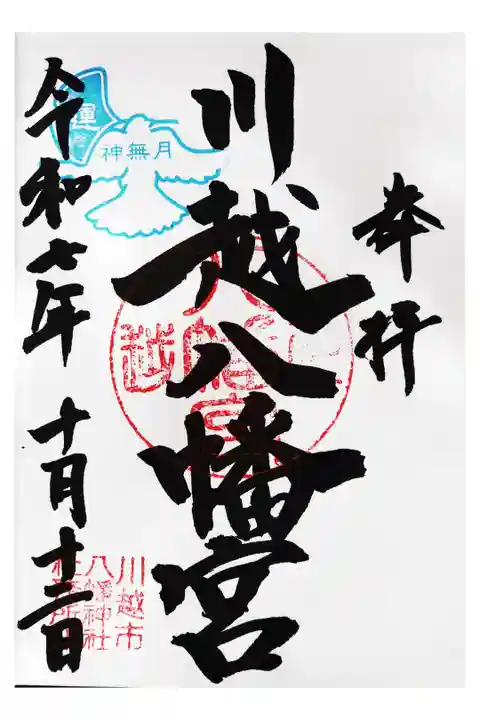 奉拝
川越八幡宮
運
神無月
令和七年 十月十二日
川越市
八幡神社
社務所